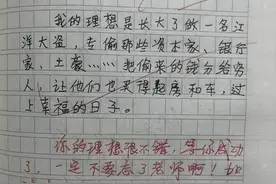 我的理想是长大了做一名江
洋大盗，专偷那些资本家、银行
家、土豪……把偷来的钱分给穷
人，让他们也买得起房和车，过
上幸福的日子。
你的理想很不错，等你成功
了，一定不要忘了老师啊！